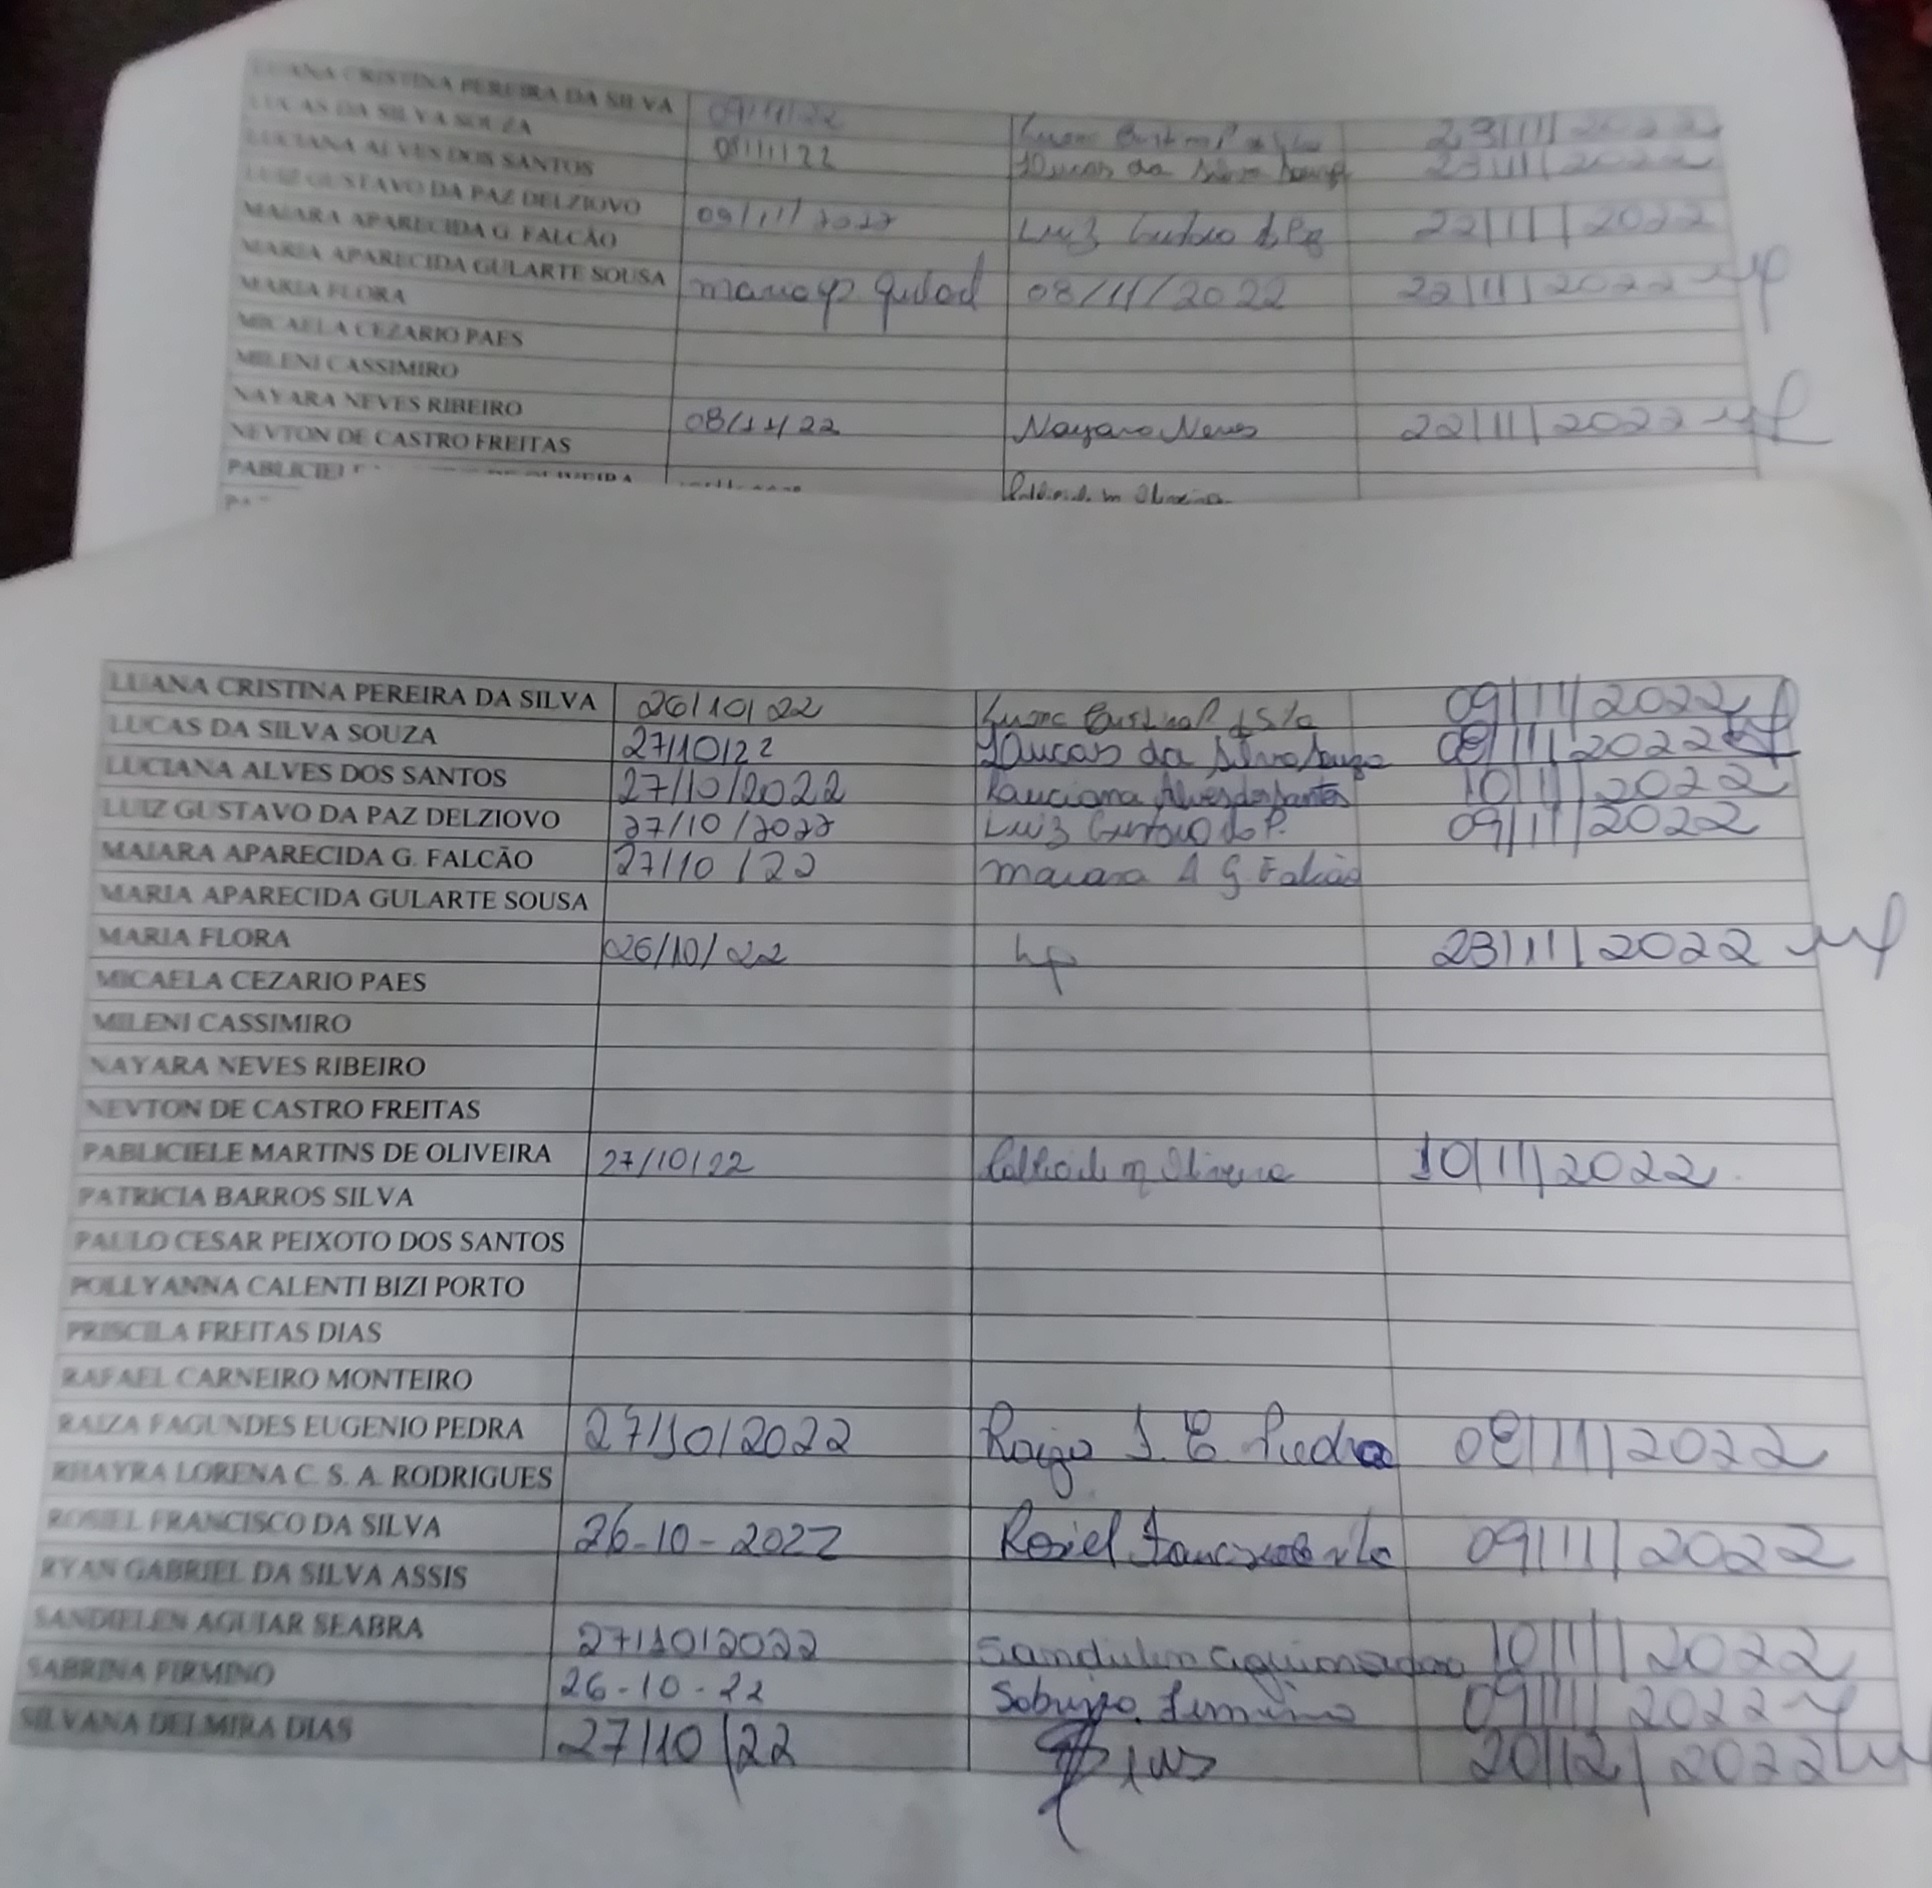 LUANA CRISTINA PEREIRA DA SILVA 09/11/22 23/11/2022
LUCAS DA SILVA SOUZA 08/11/22 Lucas da Silva Souza 23/11/2022
LUCIANA ALVES DOS SANTOS
LUIZ GUSTAVO DA PAZ DELZIOVO 09/11/2022 Luiz Gustavo d. Paz 22/11/2022
MAIARA APARECIDA G. FALCÃO
MARIA APARECIDA GULARTE SOUSA 08/11/2022 22/11/2022
MARIA FLORA
MICAELA CEZARIO PAES
MILENI CASSIMIRO
NAYARA NEVES RIBEIRO 08/11/22 Nayara Neves 22/11/2022
NEVTON DE CASTRO FREITAS
LUANA CRISTINA PEREIRA DA SILVA 26/10/22 09/11/2022
LUCAS DA SILVA SOUZA 27/10/22 Lucas da Silva Souza 08/11/2022
LUCIANA ALVES DOS SANTOS 27/10/2022 Luciana Alves dos Santos 10/11/2022
LUIZ GUSTAVO DA PAZ DELZIOVO 27/10/2022 Luiz Gustavo da P. 09/11/2022
MAIARA APARECIDA G. FALCÃO 27/10/22 Maiara A G Falcão
MARIA APARECIDA GULARTE SOUSA
MARIA FLORA 26/10/22 23/11/2022
MICAELA CEZARIO PAES
MILENI CASSIMIRO
NAYARA NEVES RIBEIRO
NEVTON DE CASTRO FREITAS
PABLICIELE MARTINS DE OLIVEIRA 27/10/22 10/11/2022
PATRICIA BARROS SILVA
PAULO CESAR PEIXOTO DOS SANTOS
POLLYANNA CALENTI BIZI PORTO
PRISCILA FREITAS DIAS
RAFAEL CARNEIRO MONTEIRO
RAIZA FAGUNDES EUGENIO PEDRA 27/10/2022 Raiza F. E. Pedra 08/11/2022
RHAYRA LORENA C. S. A. RODRIGUES
ROSIEL FRANCISCO DA SILVA 26-10-2022 Rosiel Francisco 09/11/2022
RYAN GABRIEL DA SILVA ASSIS
SANDIELEN AGUIAR SEABRA 27/10/2022 10/11/2022
SABRINA FIRMINO 26-10-22 Sabrina Firmino 09/11/2022
SILVANA DELMIRA DIAS 27/10/22 20/12/2022